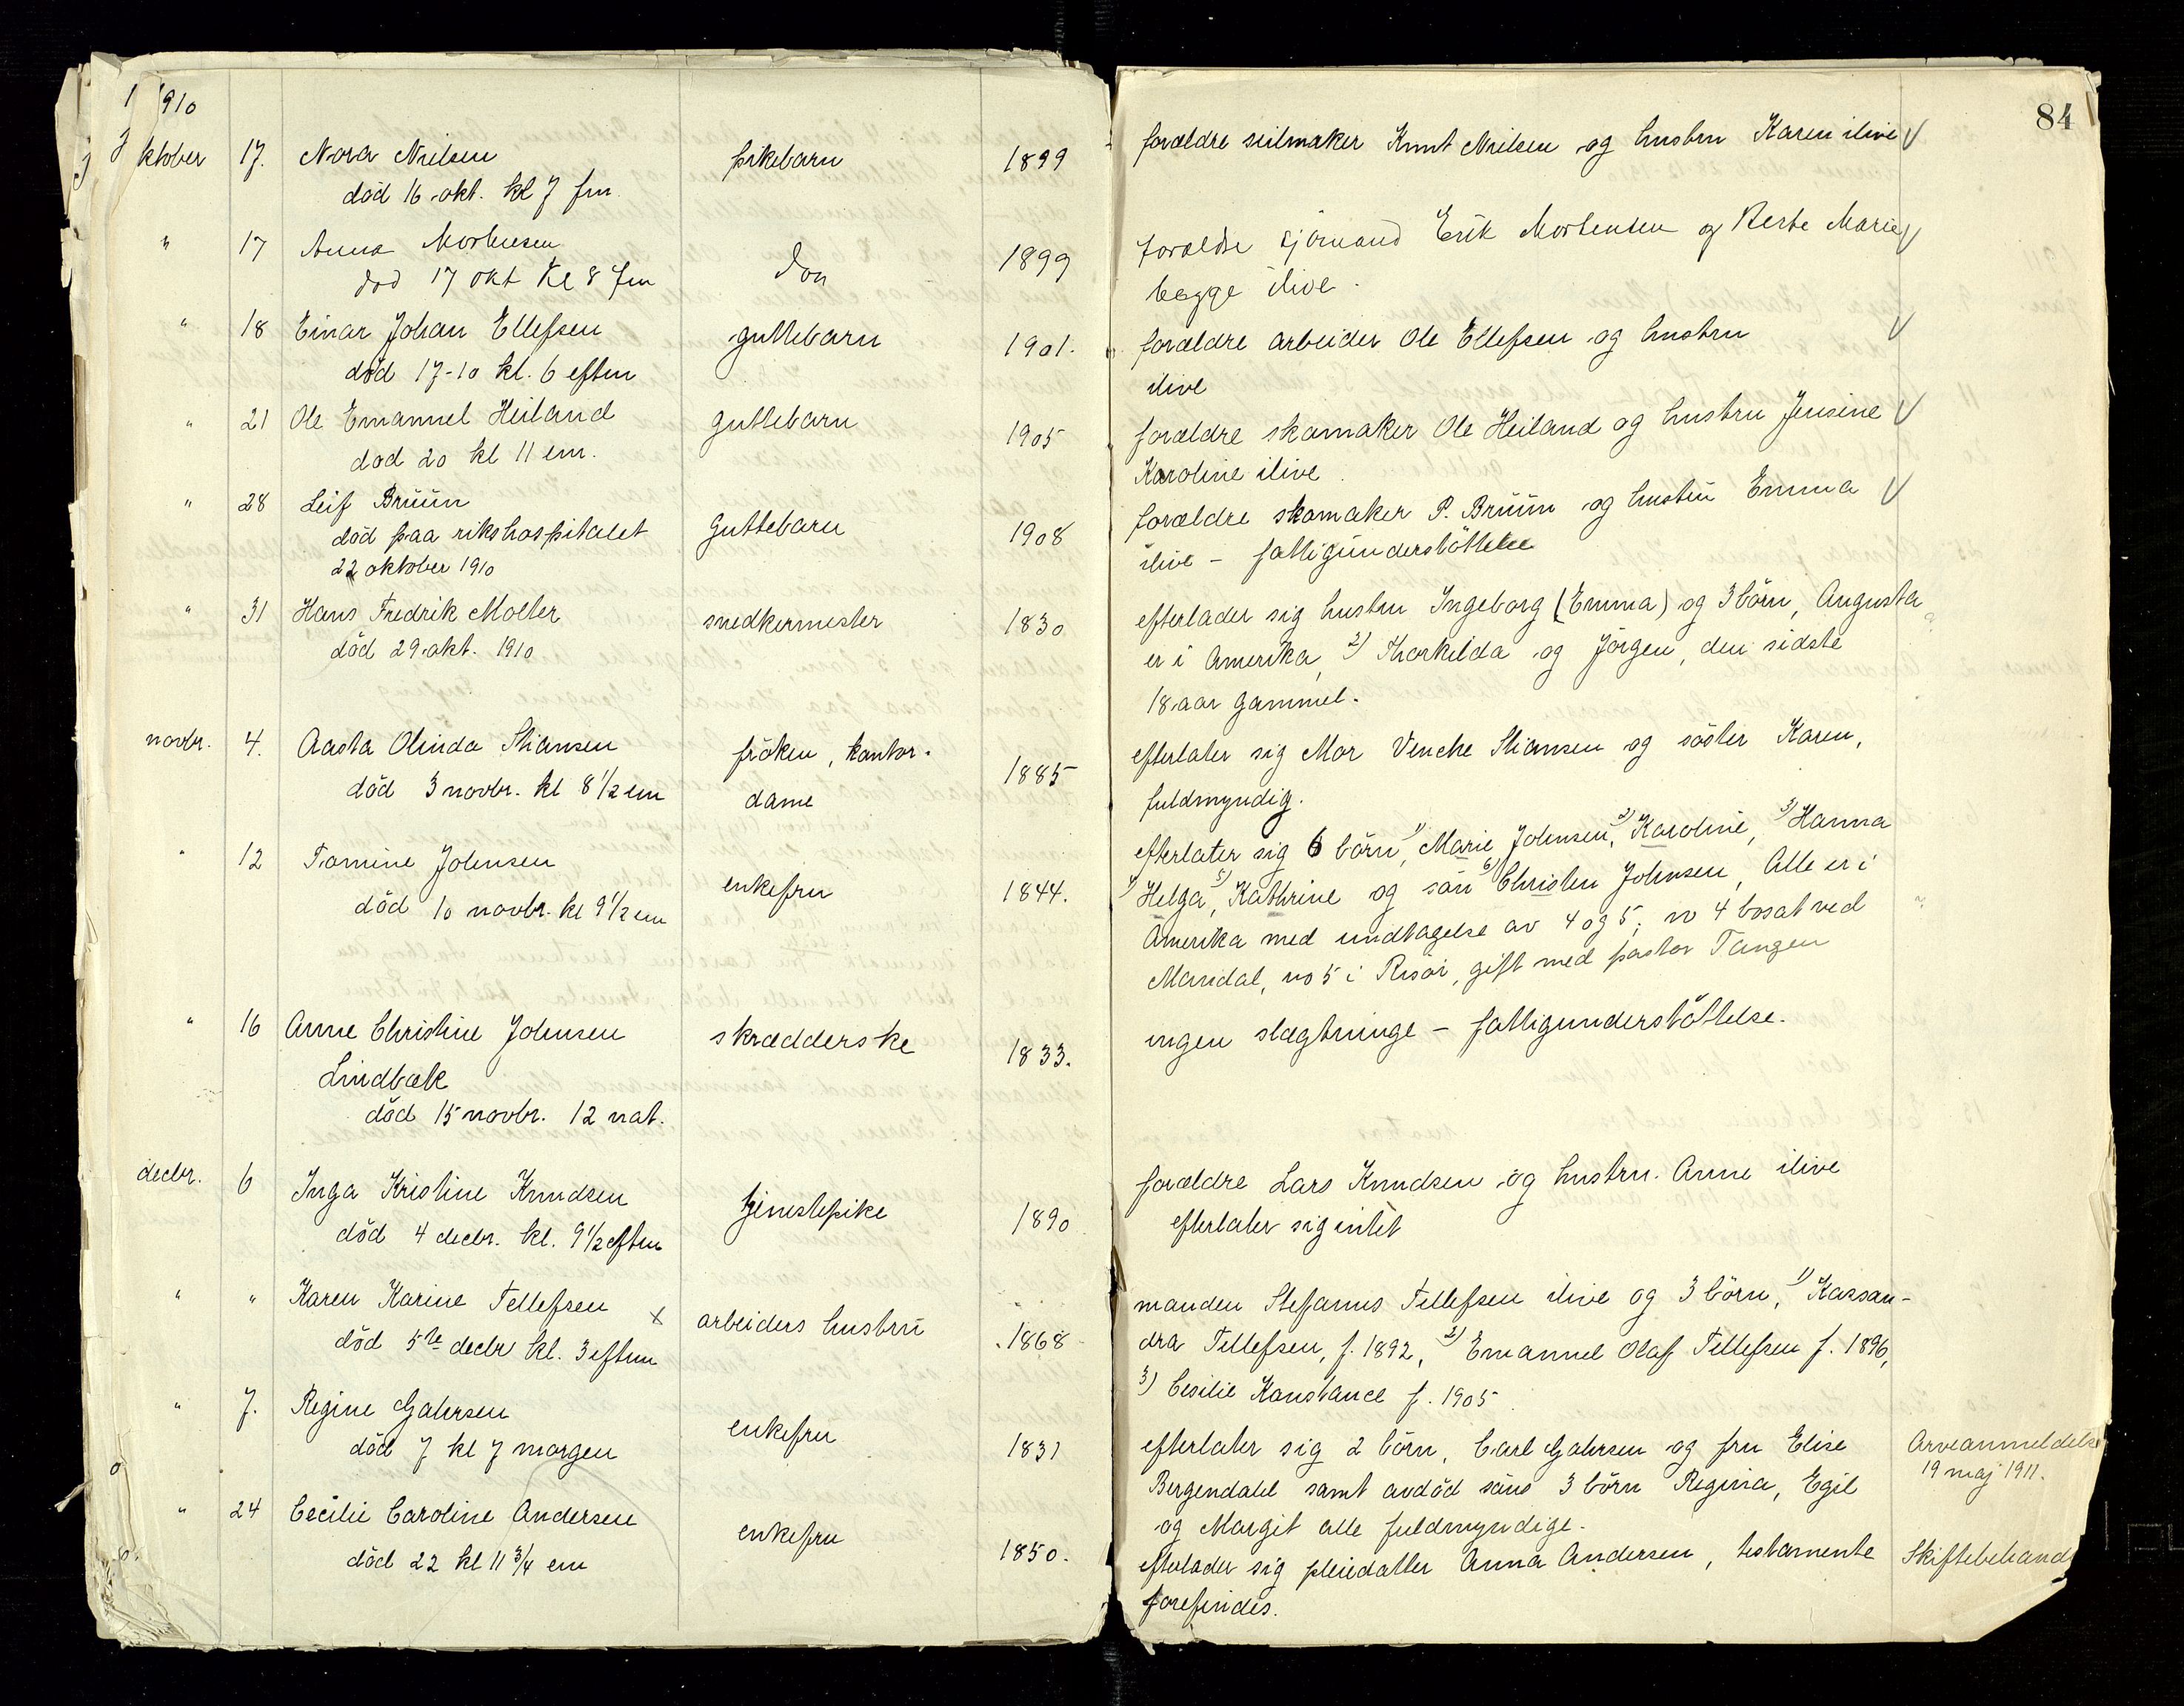 1910
84
oktober 17. Nora Nielsen pikebarn 1899 forældre seilmaker Knut Nielsen og hustru Karen ilive V
död 16 okt. kl 7 fm.
" 17 Anna Mortensen do 1899 forældre sjömand Erik Mortensen og Marie V
død 17 okt Kl 8 fm begge ilive.
" 18 Einar Johan Ellefsen guttebarn 1901. forældre arbeider Ole Ellefsen og hustru V
död 17-10 kl. 6 eftm ilive
" 21 Ole Emanuel Heiland guttebarn 1905 forældre skomaker Ole Heiland og hustru Jensine V
död 20 kl 11 em. Karoline ilive.
" 28 Leif Brüün guttebarn 1908 forældre skomaker P. Brüün og hustru Emma V
död paa rikshospitalet ilive - fattigunderstöttelse
22 oktober 1910
" 31 Hans Fredrik Molter snedkermester 1830 efterlader sig hustru Ingeborg (Emma) og 3 börn, Augusta
död 29 okt. 1910 er i Amerika, 2) Thorkilda og Jörgen, den sidste
18 aar gammel.
novbr. 4. Aasta Olinda Stiansen fröken, kontor- 1885 efterlater sig Mor Venche Stiansen og söster Karen,
död 3 novbr. kl 8 1/2 em dame fuldmyndig.
" 12 Tomine Johnsen enkefru 1844. efterlater sig 6 börn, 1) Marie Johnsen, 2) Karoline, 3) Hanna
död 10 novbr. kl 9 1/2 em 4) Helga, 5) Kathrine og sön 6) Christen Johnsen, Alle er i
Amerika med undtagelse av 4 og 5; no 4 bosat ved
Mandal, no 5 i Risör, gift med pastor Tangen
" 16 Anne Christine Johnsen skrædderske 1833. ingen slægtninge - fattigunderstöttelse.
Lindbæk
död 15 novbr. 12 nat.
decbr. 6 Inga Kristine Knudsen tjenestepike 1890 forældre Lars Knudsen og hustru Anne ilive
död 4 decbr. kl. 9 1/2 eftm efterlater sig intet
" " Karen Karine Tellefsen x arbeiders hustru 1868 manden Stefanus Tellefsen ilive og 3 börn, 1) Kassan-
död 5te decbr kl. 3 eftm dra Tellefsen, f. 1892, 2) Emanuel Olaf Tellefsen f. 1896,
3) Cesilie Konstance f. 1905
" 7. Regine Gahrsen enkefru 1831 efterlater sig 2 börn, Carl Gahrsen og fru Elise Arveanmeldelse
död 7 kl 7 morgen Bergendahl samt avdöd söns 3 börn Regina, Egil 19 maj 1911.
og Margit alle fuldmyndige.
" 24 Cecilie Caroline Andersen enkefru 1850. efterlader sig pleiedatter Anna Andersen, testamente Skiftebehand
död 22 kl 11 3/4 em forefindes.